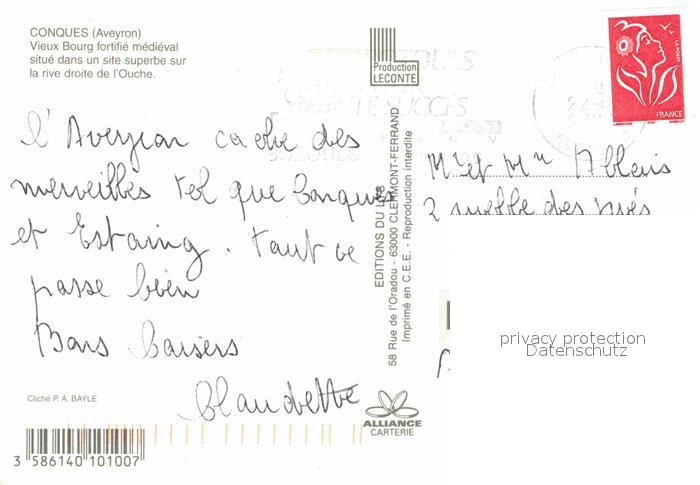 CONQUES (Aveyron)
Vieux Bourg fortifié médiéval
situé dans un site superbe sur
la rive droite de l'Ouche.
Production
LECONTE
LE SUCCES
LA POSTE
FRANCE
l'Aveyron cache des
merveilles tel que Conques
et Estaing. Tout ce
passe bien
Bons baisers
Claudette
EDITIONS DU
58 Rue de l'Oradou - 63000 CLERMONT-FERRAND
Imprimé en C.E.E. - Reproduction interdite
Mr et Mme
2 ruelle des
privacy protection
Datenschutz
Cliché P. A. BAYLE
ALLIANCE
CARTERIE
3 586140 101007